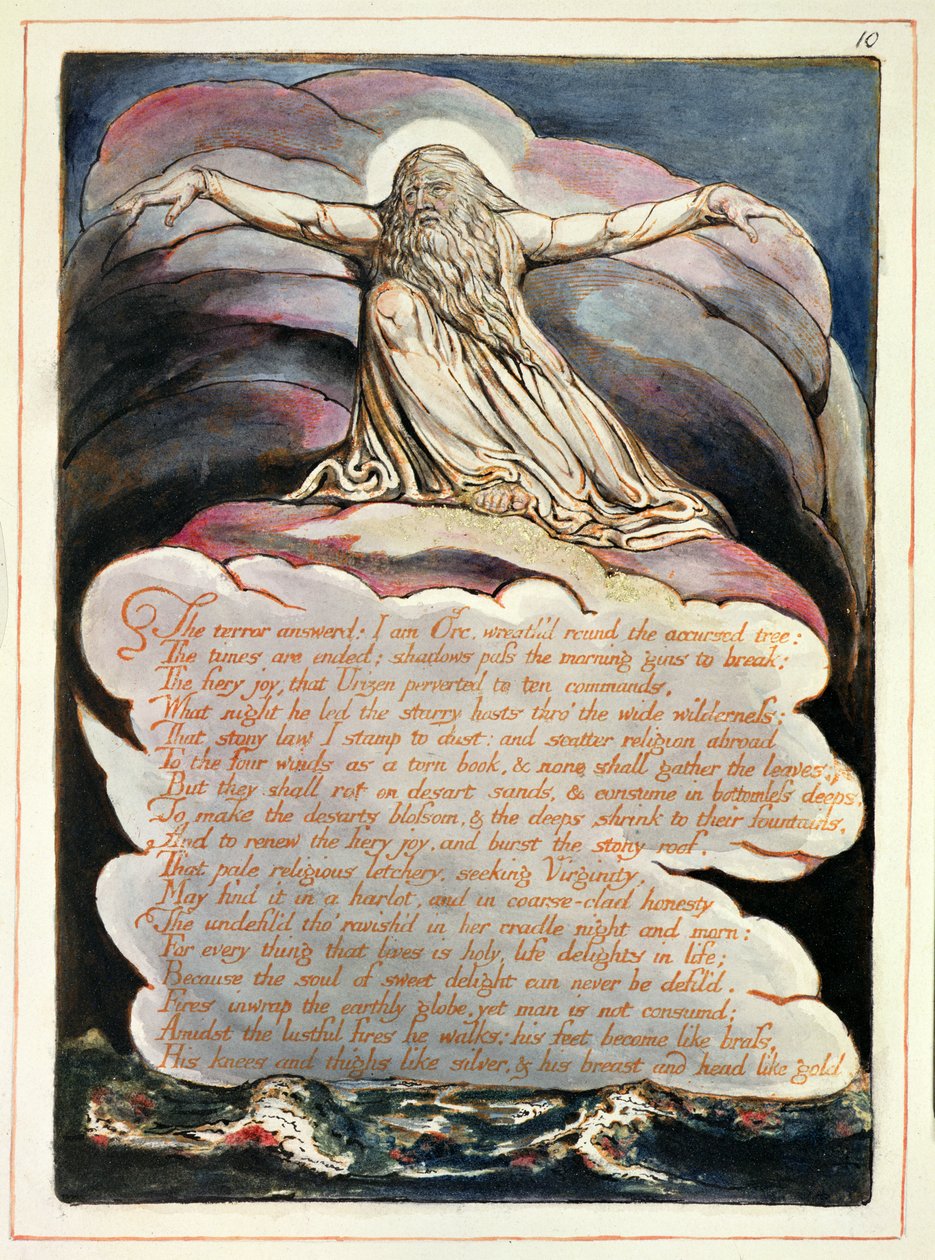 10
The terror answerd: I am Orc, wreath'd round the accursed tree:
The times are ended; shadows pass the morning gins to break;
The fiery joy, that Urizen perverted to ten commands,
What night he led the starry hosts thro' the wide wilderness;
That stony law I stamp to dust: and scatter religion abroad
To the four winds as a torn book, & none shall gather the leaves;
But they shall rot on desart sands, & consume in bottomless deeps;
To make the desarts blossom, & the deeps shrink to their fountains,
And to renew the fiery joy, and burst the stony roof.
That pale religious letchery, seeking Virginity,
May find it in a harlot, and in coarse-clad honesty
The undefil'd tho' ravish'd in her cradle night and morn:
For every thing that lives is holy, life delights in life;
Because the soul of sweet delight can never be defil'd.
Fires inwrap the earthly globe, yet man is not consumd;
Amidst the lustful fires he walks: his feet become like brass,
His knees and thighs like silver, & his breast and head like gold